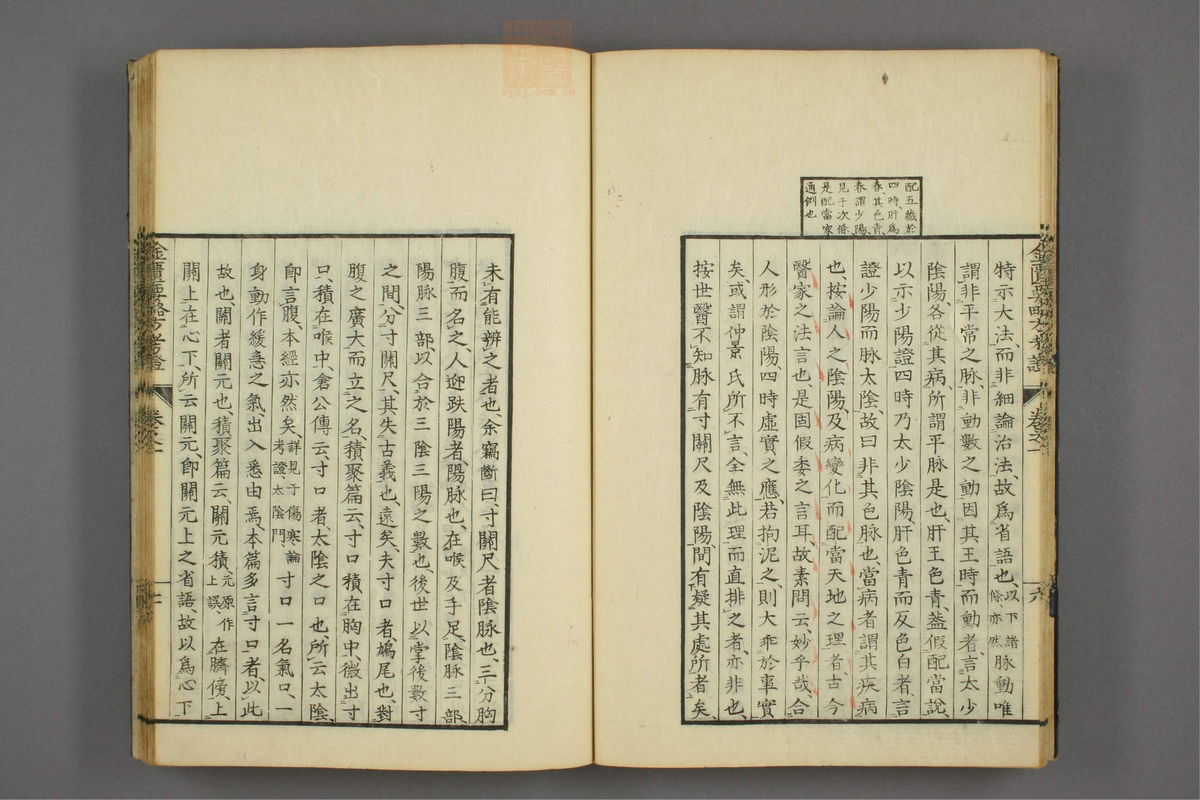 配五藏於
四時肝爲
春其色青、
春謂少陽、
見于次條、
是配當家
通例也
特示大法、而非細論治法、故爲省語也、以下諸條、亦然、脉動唯
謂非平常之脉、非動數之動、因其王時而動者、言太少
陰陽、各從其病、所謂平脉是也、肝王色青、蓋假配當說、
以示少陽證、四時乃太少陰陽、肝色青而反色白者、言
證少陽而脉太陰、故曰非其色脉也、當病者謂其疾病
也、按論人之陰陽、及病變化、而配當天地之理者、古今
醫家之法言也、是固假委之言耳、故素問云妙乎哉、合
人形於陰陽、四時虛實之應、若拘泥之、則大乖於事實
矣、或謂仲景氏所不言、全無此理、而直排之者、亦非也、
按世醫不知脉有寸關尺及陰陽、間有疑其處所者矣、
未有能辨之者也、余竊斷曰、寸關尺者陰脉也、三分胸
腹而名之、人迎趺陽者、陽脉也、在喉及手足、陰脉三部、
陽脉三部、以合於三陰三陽之數也、後世以掌後數寸
之間、分寸關尺、其失古義也、遠矣、夫寸口者、鳩尾也、對
腹之廣大而立之名、積聚篇云、寸口積在胸中、微出寸
口、積在喉中、倉公傳云、寸口者、太陰之口也、所云太陰、
卽言腹、本經亦然矣、詳見于傷寒論考證、太陰門、寸口一名氣口、一
身動作緩急之氣、出入悉由焉、本篇多言寸口者、以此
故也、關者關元也、積聚篇云、關元積、元原作上誤、在臍傍、上
關上在心下、所云關元、卽關元上之省語、故以爲心下
金匱要略方考證
卷之一
六
金匱要略方考證
卷之一